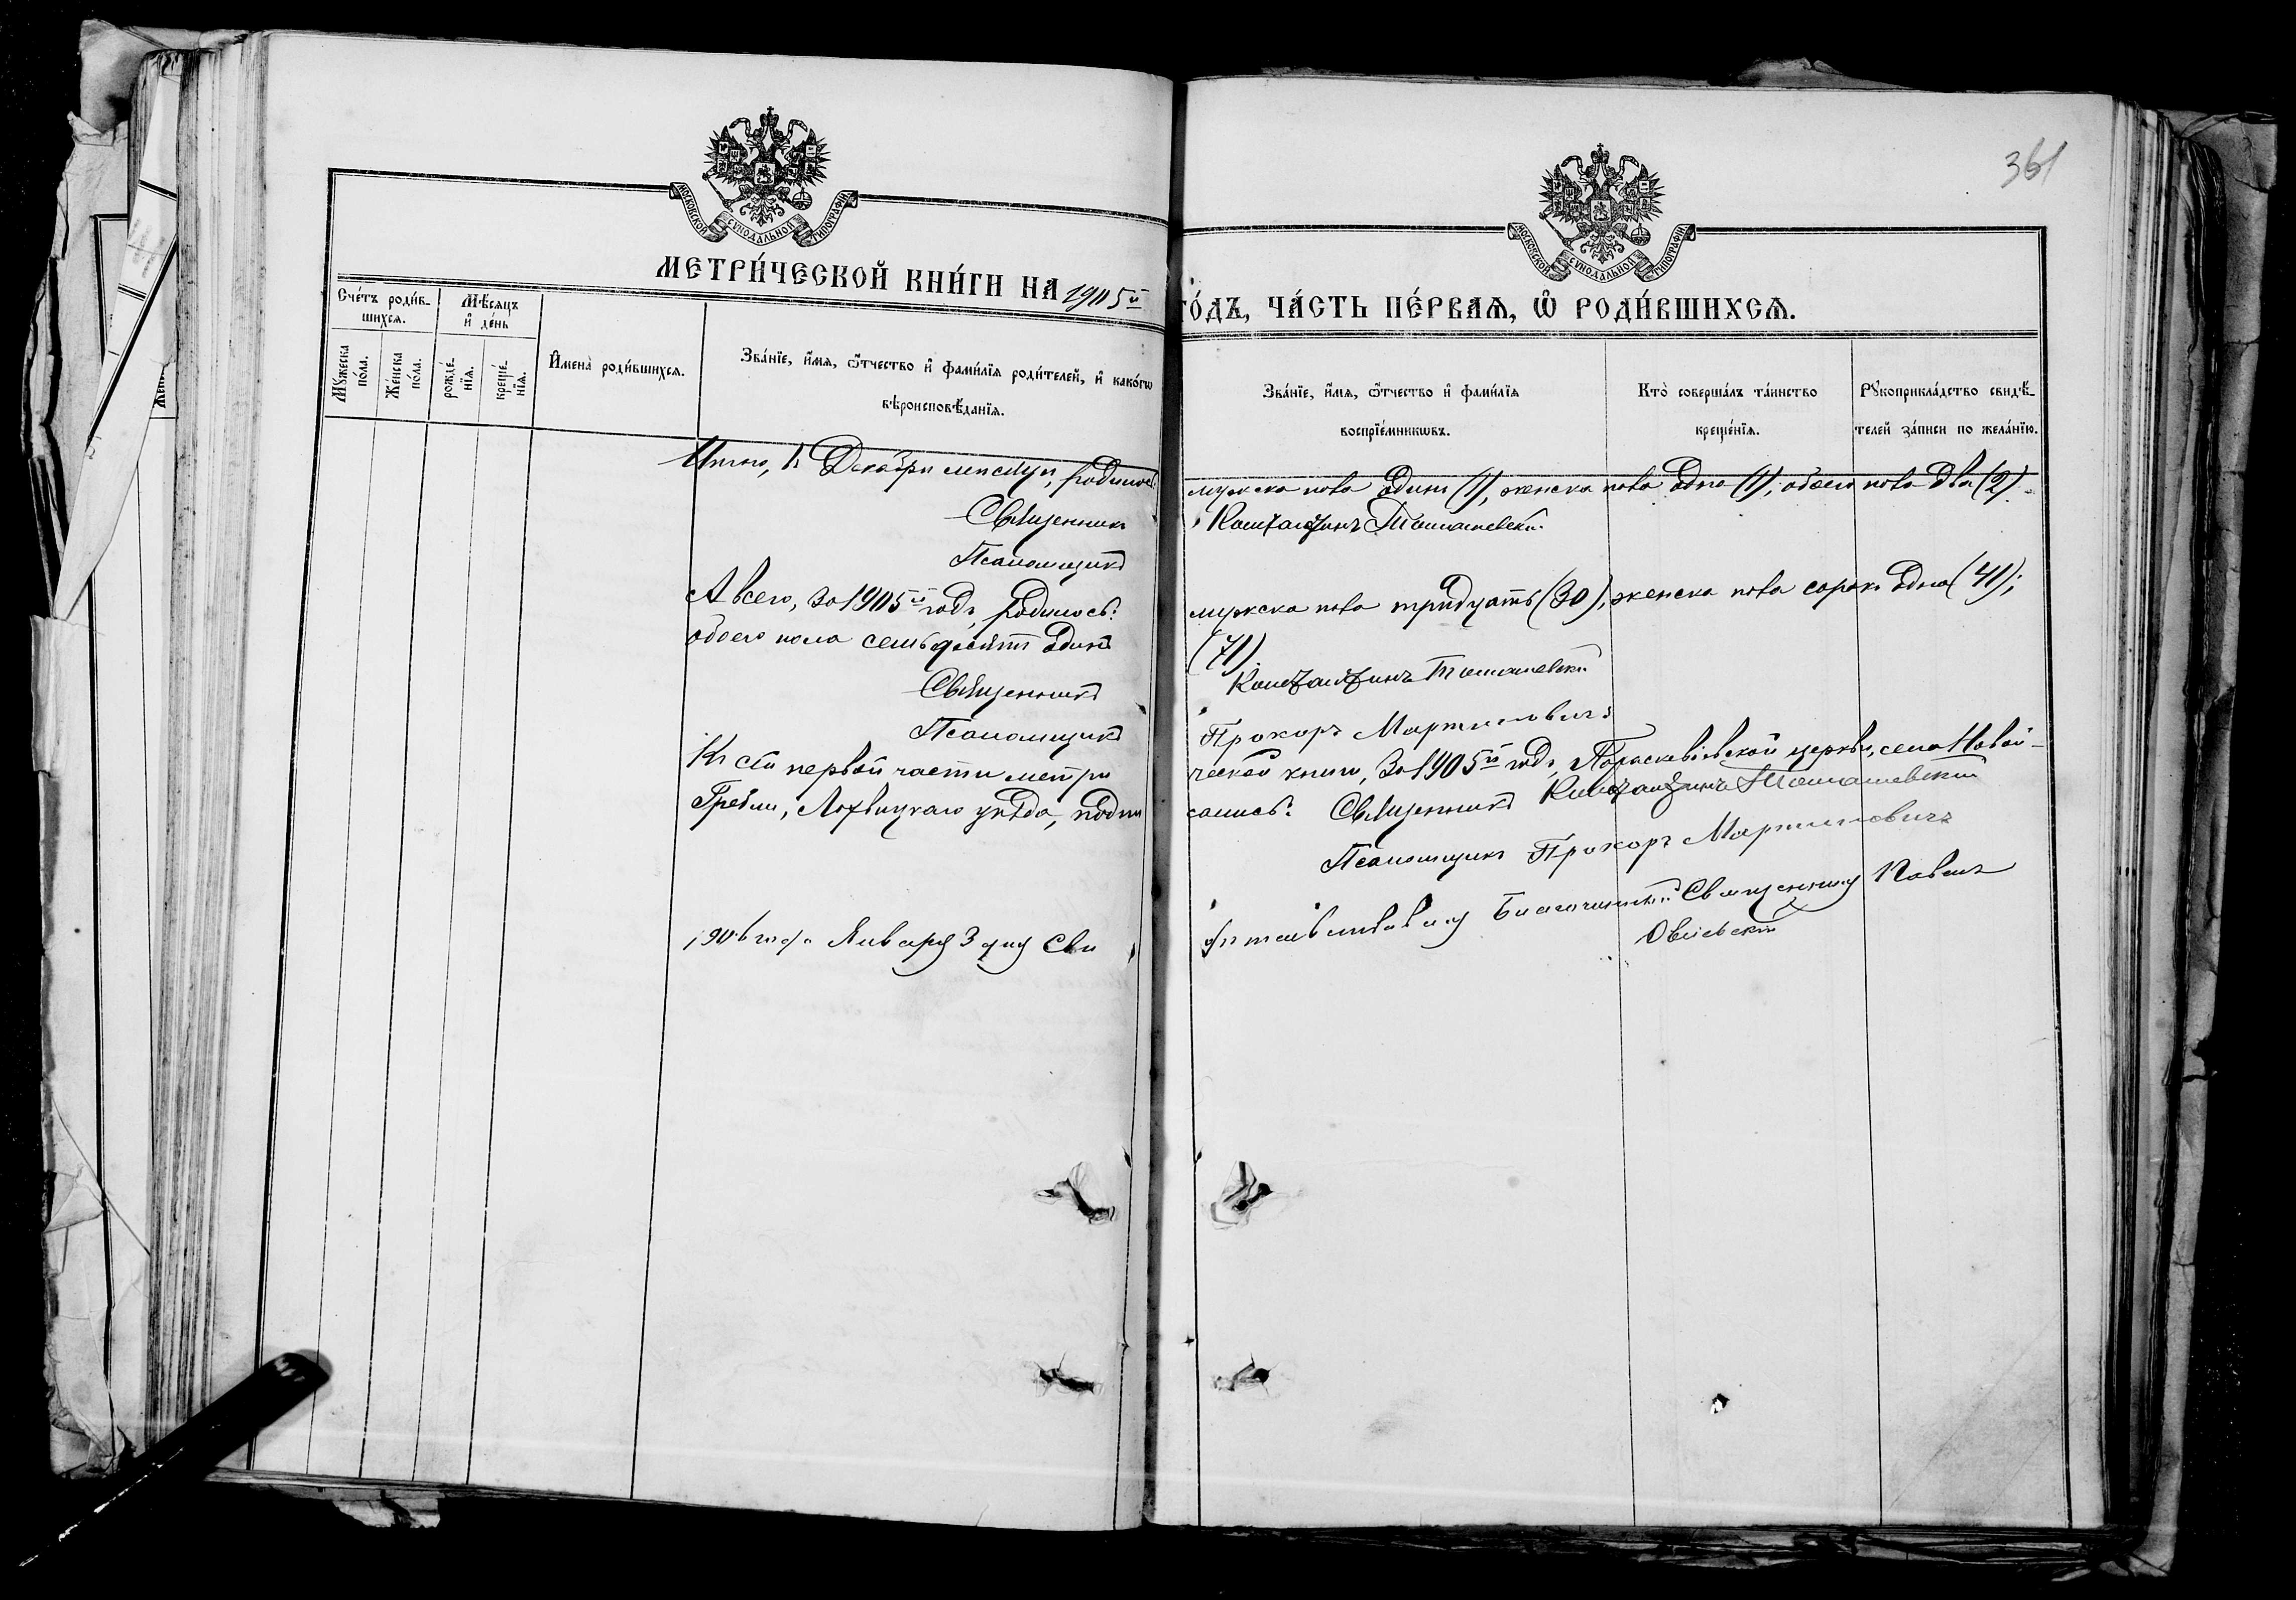 361
МОСКОВСКОЙ СѴНОДАЛЬНОЙ ТИПОГРАФІИ
МОСКОВСКОЙ СѴНОДАЛЬНОЙ ТИПОГРАФІИ
МЕТРИ́ЧЕСКОЙ КНИ́ГИ НА 1905й
ГО́ДЪ, ЧА́СТЬ ПЕ́РВАѦ, Ѽ РОДИ́ВШИХСѦ.
Сче́тъ роди́в-
шихсѧ.
Мѣ́сѧцъ
и҆ де́нь
Мꙋ́жеска
по́ла.
Же́нска
по́ла.
рожде́-
нїѧ.
креще́-
нїѧ.
И҆мена̀ роди́вшихсѧ.
Зва́нїе, и҆́мѧ, ѻ҆́тчество и҆ фами́лїѧ роди́телей, и҆ како́гѡ
вѣроисповѣ́данїѧ.
Зва́нїе, и҆́мѧ, ѻ҆́тчество и҆ фами́лїѧ
воспрїе́мникѡвъ.
Кто̀ соверша́лъ та́инство
креще́нїѧ.
Рꙋкоприкла́дство свидѣ́-
телей за́писи по жела́нїю.
Итого, въ Декабрѣ мѣсяцѣ, родилось: мужска пола одинъ (1), женска пола одна (1), обоего пола два (2).
Священникъ Константинъ Томашевскій
Псаломщикъ
А всего, за 1905й годъ, родилось: мужска пола тридцать (30), женска пола сорокъ одна (41);
обоего пола семьдесятъ одинъ (71)
Священникъ Константинъ Томашевскій
Псаломщикъ Прохоръ Мартиновичъ
Къ сей первой части метрической книги, за 1905й годъ, Параскевіевской церкви, села Новой-
Гребли, Лохвицкаго уѣзда, подписались: Священникъ Константинъ Томашевскій
Псаломщикъ Прохоръ Мартиновичъ
1906 года Января 3 дня Благочинный Священникъ Павелъ